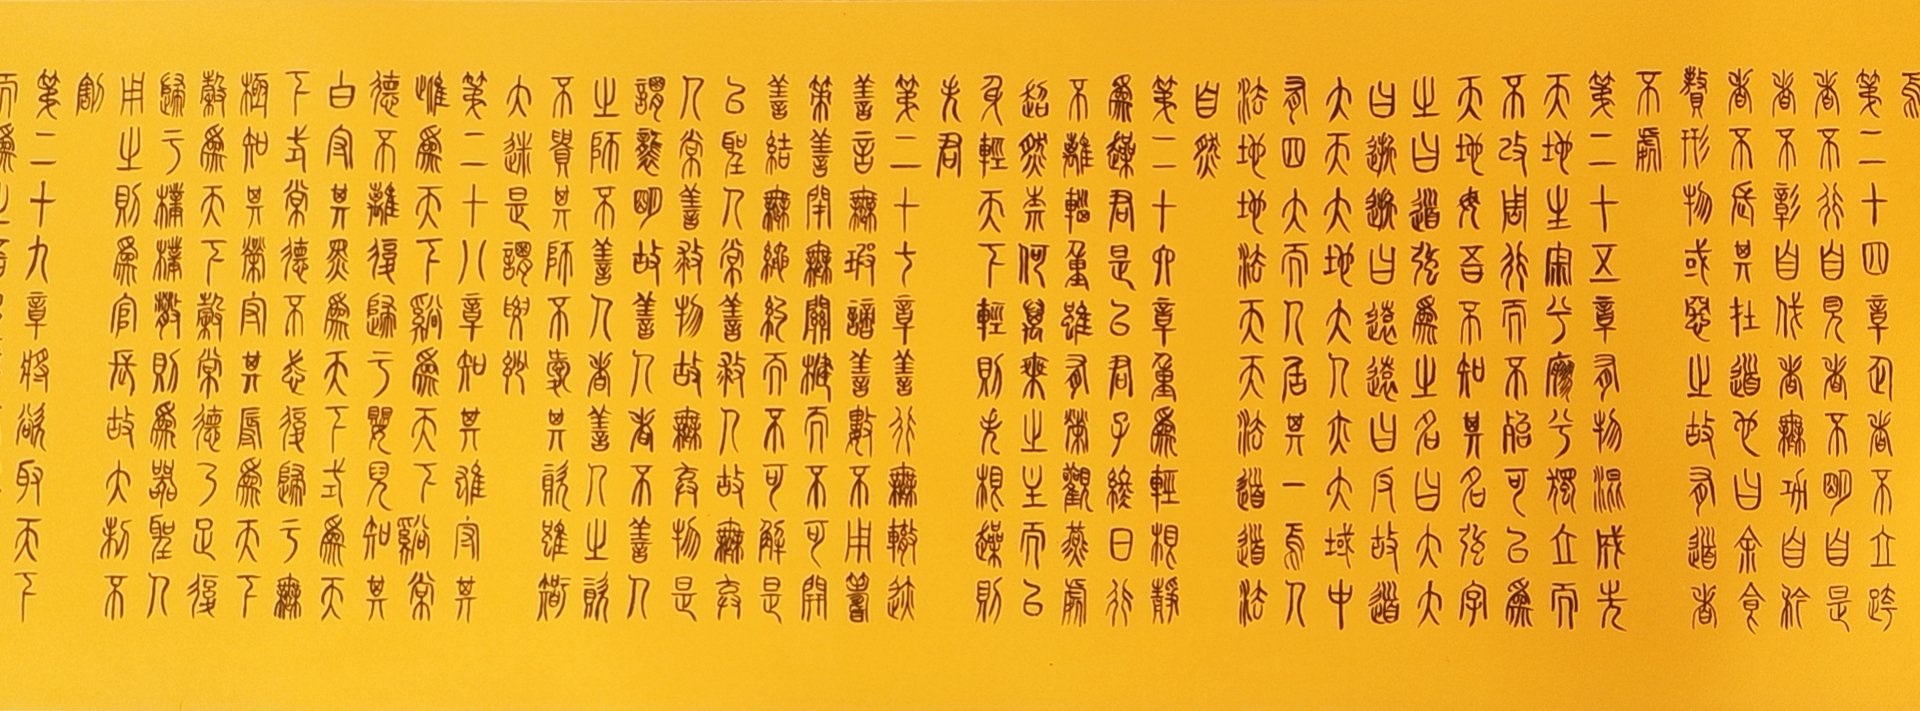 焉
第二十四章企者不立跨
者不行自見者不明自是
者不彰自伐者無功自矜
者不長其在道也曰余食
贅形物或惡之故有道者
不處
第二十五章有物混成先
天地生寂兮寥兮獨立而
不改周行而不殆可以為
天地母吾不知其名強字
之曰道強為之名曰大大
曰逝逝曰遠遠曰反故道
大天大地大人亦大域中
有四大而人居其一焉人
法地地法天天法道道法
自然
第二十六章重為輕根靜
為躁君是以君子終日行
不離輜重雖有榮觀燕處
超然奈何萬乘之主而以
身輕天下輕則失根躁則
失君
第二十七章善行無轍迹
善言無瑕謫善數不用籌
策善閉無關楗而不可開
善結無繩約而不可解是
以聖人常善救人故無棄
人常善救物故無棄物是
謂襲明故善人者不善人
之師不善人者善人之資
不貴其師不愛其資雖智
大迷是謂要妙
第二十八章知其雄守其
雌為天下谿為天下谿常
德不離復歸于嬰兒知其
白守其黑為天下式為天
下式常德不忒復歸于無
極知其榮守其辱為天下
穀為天下穀常德乃足復
歸于樸樸散則為器聖人
用之則為官長故大制不
割
第二十九章將欲取天下
而為之吾